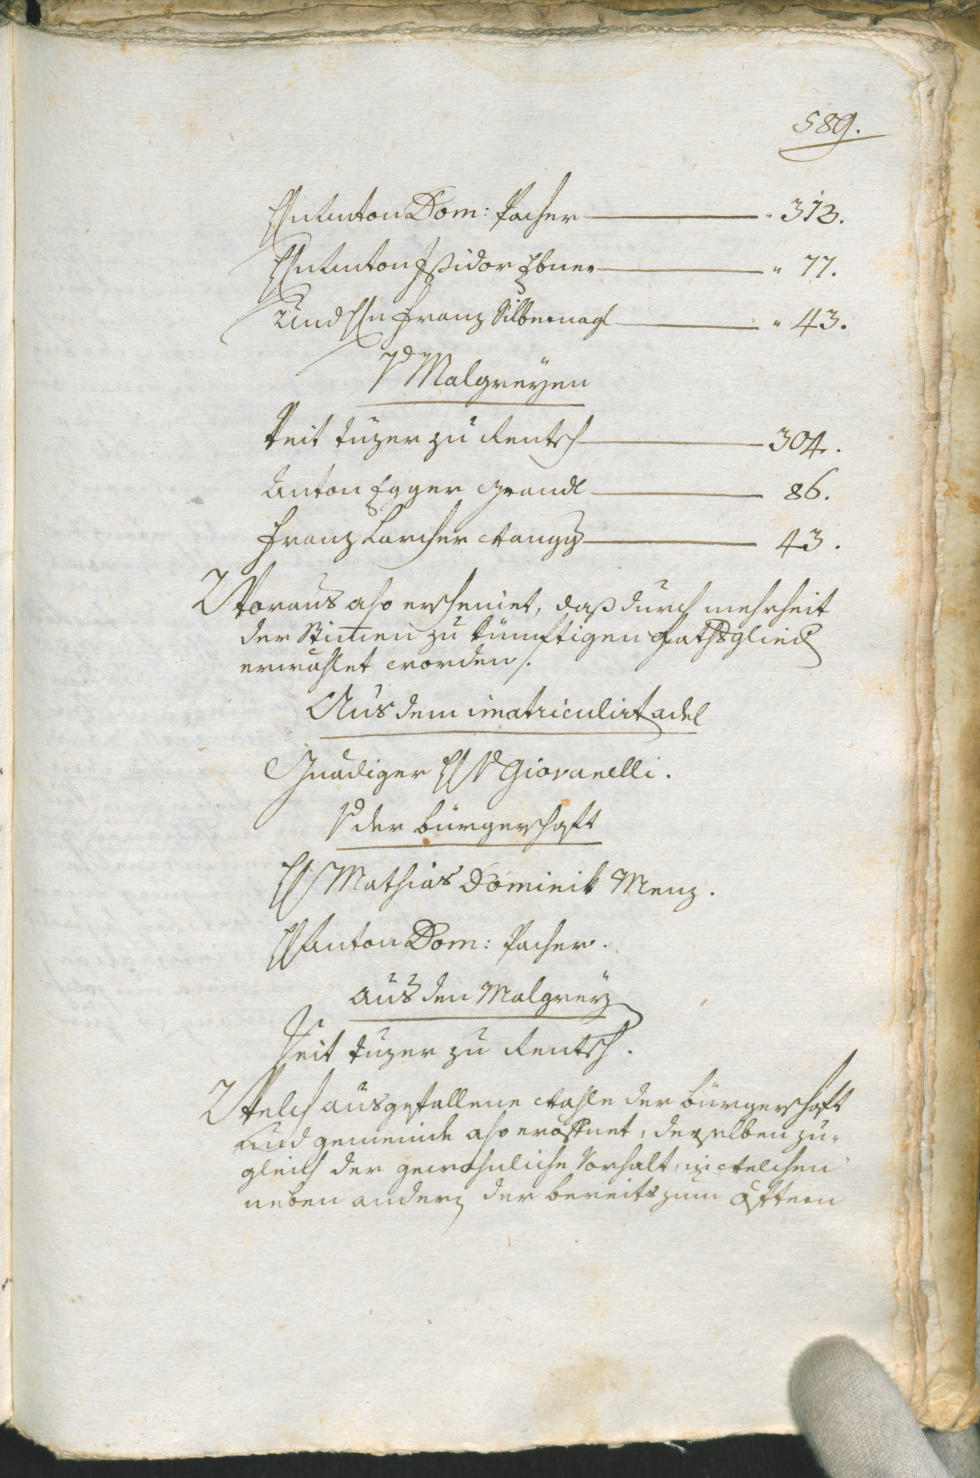 589.
Hn Anton Dom: Pacher " 313.
Hn Anton Isidor Ebner " 77.
Und Hn Franz Silbernagl " 43.
Vo Malgreÿen
Veit Tuzer zu Rentsch 304.
Anton Egger 86.
Franz Larcher 43.
Woraus also erscheinet, daß durch mehrheit
der Stimen zu künftigen Rathsglied
erwählet worden.
Aus dem imatriculirt adel
Gnädiger H v Giovanelli.
Vo der bürgerschaft
H Mathias Dominik Menz.
H Anton Dom: Pacher.
aus den Malgreÿ
Veit Tuzer zu Rentsch.
Welch ausgefallene wahle der bürgerschaft
und gemeinde also eröffnet, derselben zu=
gleich der gewohnliche Vorhalt, in welchen
neben andern der bereits zum öftern